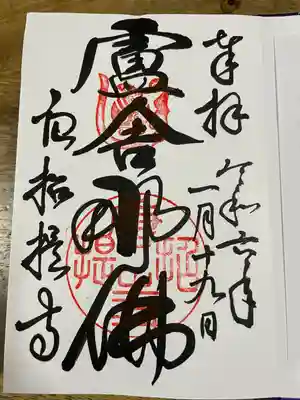 奉拝
令和六年
一月十九日
盧舎那佛
唐招提寺